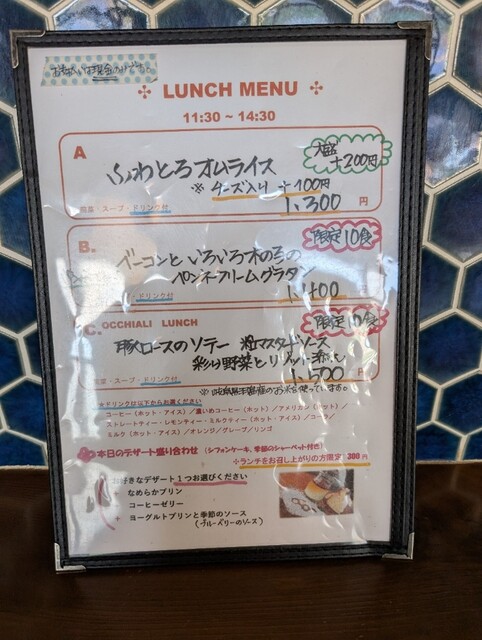 お支払いは現金のみです。
LUNCH MENU
11:30 ~ 14:30
A
大盛
+200円
ふわとろオムライス
※ チーズ入り +100円
1,300 円
前菜・スープ・ドリンク付
B.
限定10食
ベーコンといろいろ木の子の
ペンネクリームグラタン
・ドリンク付
1,400 円
C. OCCHIALI LUNCH
限定10食
豚ロースのソテー 粒マスタードソース
彩り野菜とリゾット添え
前菜・スープ・ドリンク付
1,500 円
のお米を使っています。
★ドリンクは以下からお選びください
コーヒー（ホット・アイス）／濃いめコーヒー（ホット）／アメリカン（ホット）／
ストレートティー・レモンティー・ミルクティー（ホット・アイス）／コーラ／
ミルク（ホット・アイス）／オレンジ／グレープ／リンゴ
本日のデザート盛り合わせ （シフォンケーキ、季節のシャーベット付き）
◇ランチをお召し上がりの方限定！300円
お好きなデザート１つお選びください
なめらかプリン
コーヒーゼリー
ヨーグルトプリンと季節のソース
(ブルーベリーのソース)